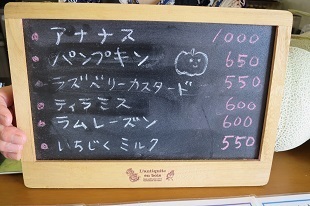 アナナス 1000
パンプキン 650
ラズベリーカスタード 550
ティラミス 600
ラムレーズン 600
いちじくミルク 550
L'antiquité
en bois